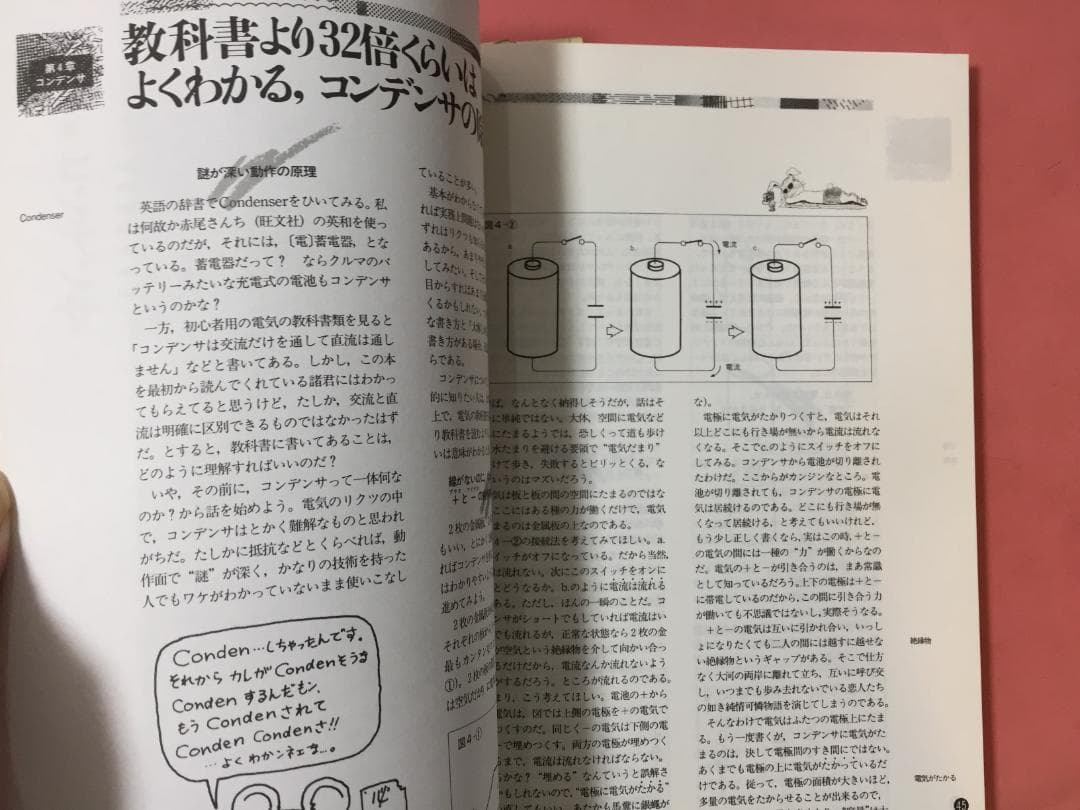 第4章
コンデンサ
教科書より32倍くらいは
よくわかる,コンデンサの
謎が深い動作の原理
Condenser
英語の辞書でCondenserをひいてみる。私
は何故か赤尾さんち(旺文社)の英和を使っ
ているのだが,それには,〔電〕蓄電器,とな
っている。蓄電器だって? ならクルマのバ
ッテリーみたいな充電式の電池もコンデンサ
というのかな?
一方,初心者用の電気の教科書類を見ると
「コンデンサは交流だけを通して直流は通し
ません」などと書いてある。しかし,この本
を最初から読んでくれている諸君にはわかっ
てもらえてると思うけど,たしか,交流と直
流は明確に区別できるものではなかったはず
だ。とすると,教科書に書いてあることは,
どのように理解すればいいのだ?
いや,その前に,コンデンサって一体何な
のか?から話を始めよう。電気のリクツの中
で,コンデンサはとかく難解なものと思われ
がちだ。たしかに抵抗などとくらべれば,動
作面で“謎”が深く,かなりの技術を持った
人でもワケがわかっていないまま使いこなし
Conden…しちゃったんです。
それから カレがCondenそうま
Conden するんだもン,
もう Conden されて
Conden Condenさ!!
…よく わかンネェな…。
ていることが多い。
基本がわからなく
れば実務上問題
ずれはリクツも
あるから,あまり
してみたい。そして
目からすればあま
くるかもしれない。
な書き方と「大体
書き方がある場合,
らである。
コンデンサについ
的に知りたい人は,
上で,電気の専門
り教科書を読む
いは意味がわか
線がないのに
+と-の
2枚の金属
もいい,とにかく
ればコンデンサ
はわかりやすい
進めてみよう。
2枚の金属
それぞれの
最もカンタン
①)。2枚の
は空気だが,
図4-①
図4-②
a.
b.
電流
c.
電流
ば,なんとなく納得しそうだが,話はそ
に単純ではない。大体,空間に電気など
にたまるようでは,恐しくって道も歩け
水たまりを避ける要領で“電気だまり”
けて歩き,失敗するとビリッとくる,な
いうのはマズいだろう。
気は板と板の間の空間にたまるのではな
ここにはある種の力が働くだけで,電気
まるのは金属板の上なのである。
4-②の接続法を考えてみてほしい。a.
イッチがオフになっている。だから当然,
は流れない。次にこのスイッチをオンに
とどうなるか。b.のように電流は流れる
ある。ただし,ほんの一瞬のことだ。コ
ンサがショートでもしていれば電流はい
でも流れるが,正常な状態なら2枚の金
が空気という絶縁物を介して向かい合っ
るだけだから,電流なんか流れないよう
がするだろう。ところが流れるのである。
まり,こう考えてほしい。電池の+から
気は,図では上側の電極を+の電気で
つくすのだ。同じく-の電気は下側の電
-で埋めつくす。両方の電極が埋めつく
るまで,電流は流れなければならない。
るかな?“埋める”なんていうと誤解さ
かもしれないので,“電極に電気がたかる”
い直してもいい。あたかも馬糞に銀蝿が
な)。
電極に電気がたかりつくすと,電気はそれ
以上どこにも行き場が無いから電流は流れな
くなる。そこでc.のようにスイッチをオフに
してみる。コンデンサから電池が切り離され
たわけだ。ここからがカンジンなところ。電
池が切り離されても,コンデンサの電極に電
気は居続けるのである。どこにも行き場が無
くなって居続ける,と考えてもいいけれど,
もう少し正しく書くなら,実はこの時,+と-
の電気の間には一種の“力”が働くからなの
だ。電気の+と-が引き合うのは,まあ常識
として知っているだろう。上下の電極は+と-
に帯電しているのだから,この間に引き合う力
が働いても不思議ではないし,実際そうなる。
+と-の電気は互いに引かれ合い,いっし
ょになりたくても二人の間には越すに越せな
い絶縁物というギャップがある。そこで仕方
なく大河の両岸に離れて立ち,互いに呼び交
し,いつまでも歩み去れないでいる恋人たち
の如き純情可憐物語を演じてしまうのである。
そんなわけで電気はふたつの電極上にたま
る。もう一度書くが,コンデンサに電気がた
まるのは,決して電極間のすき間にではない。
あくまでも電極の上に電気がたかっているだ
けである。従って,電極の面積が大きいほど,
多量の電気をたからせることが出来るので,
絶縁物
電気がたかる
45